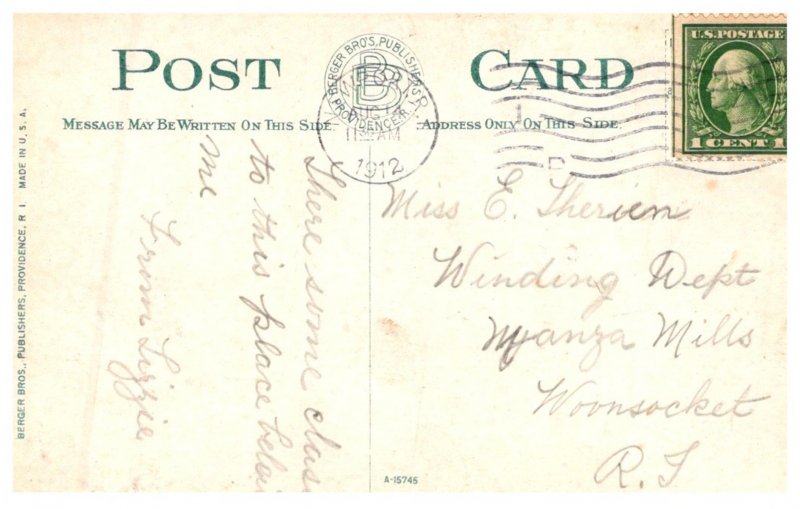 POST CARD
BERGER BRO'S. PUBLISHERS
BB
PROVIDENCE R.I.
AUG
AM
1912
U.S. POSTAGE
1 CENT 1
MESSAGE MAY BE WRITTEN ON THIS SIDE.
ADDRESS ONLY ON THIS SIDE.
There some class
to this place below
me
From Lizzie
Miss E. Therien
Winding Dept
Nyanza Mills
Woonsocket
R. I
BERGER BROS., PUBLISHERS, PROVIDENCE, R I. MADE IN U. S. A.
A-15745